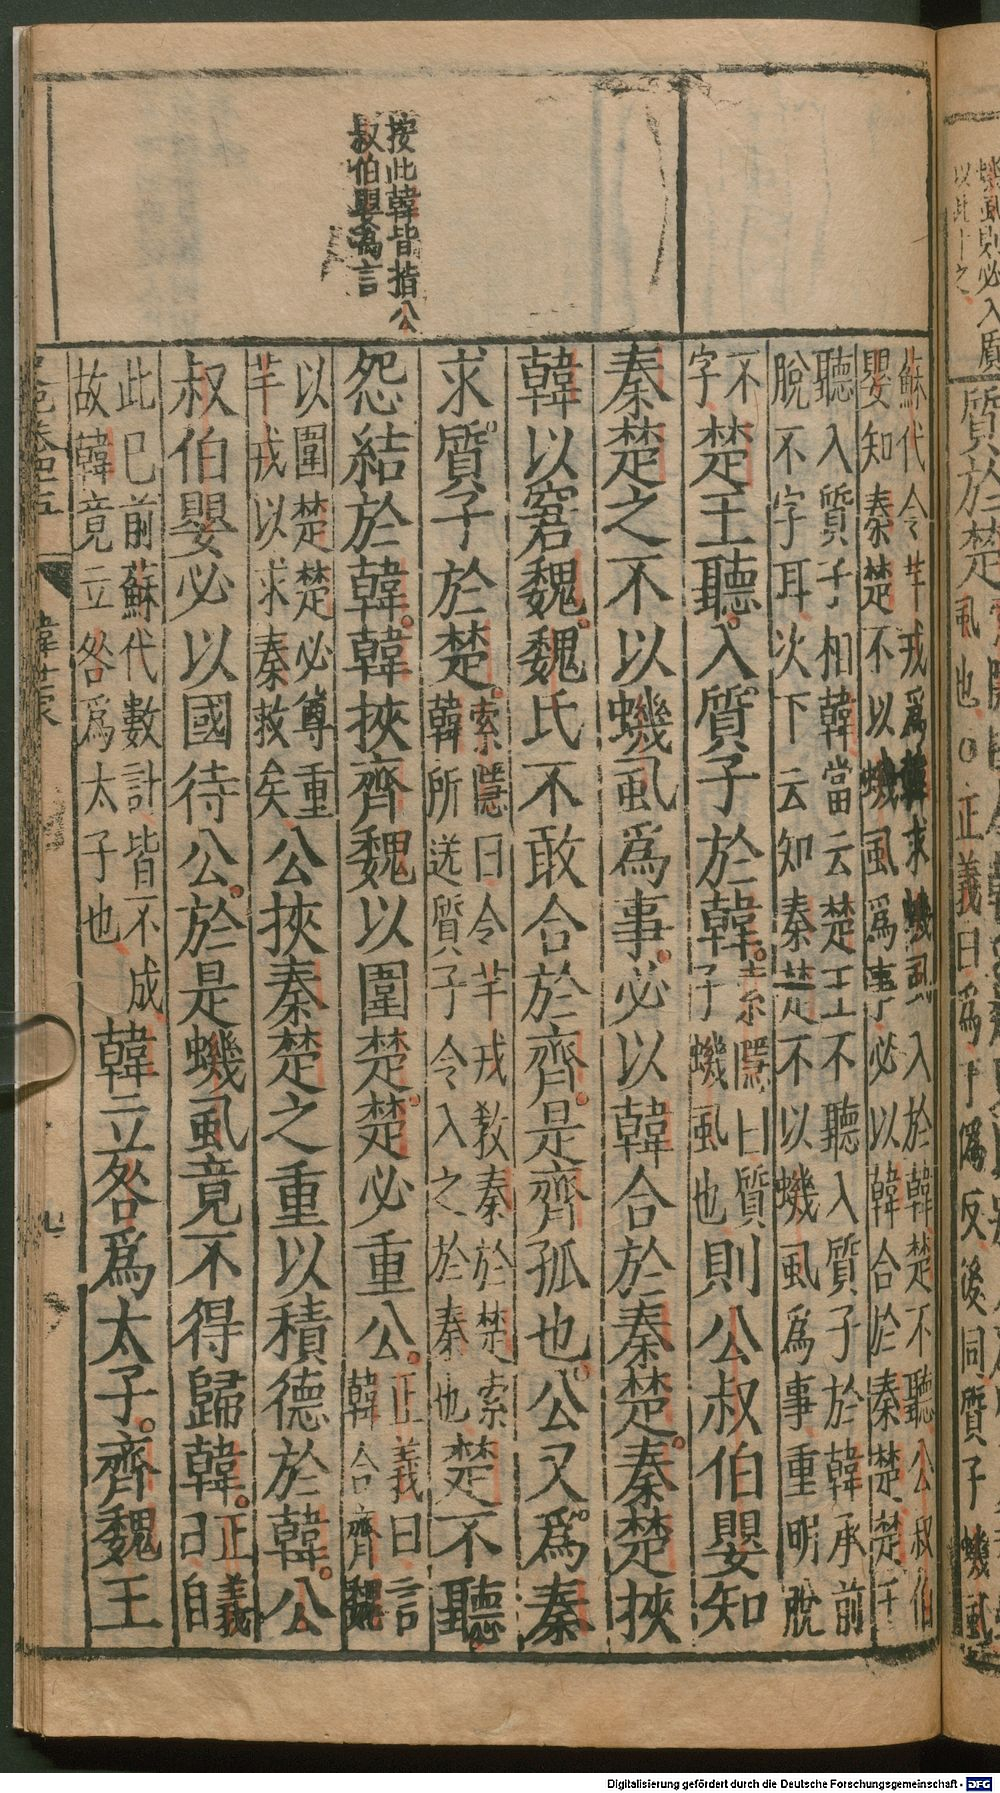 按此韓皆指公
叔伯嬰爲言
蘇代令芈戎爲韓求蟣虱入於韓楚不聽公叔伯
嬰知秦楚不以蟣虱爲事必以韓合於秦楚楚王
聽入質子相韓當云楚王不聽入質子於韓承前
脫不字耳次下云知秦楚不以蟣虱爲事重明脫
不
字
楚王聽入質子於韓
索隱曰質
子蟣虱也
則公叔伯嬰知
秦楚之不以蟣虱爲事必以韓合於秦楚秦楚挾
韓以窘魏魏氏不敢合於齊是齊孤也公又爲秦
求質子於楚
索隱曰令芈戎教秦於楚索
韓所送質子令入之於秦也
楚不聽
怨結於韓韓挾齊魏以圍楚楚必重公
正義曰言
韓合齊魏
以圍楚楚必尊重
芈戎以求秦救矣
公挾秦楚之重以積德於韓公
叔伯嬰必以國待公於是蟣虱竟不得歸韓
正義
曰自
此已前蘇代數計皆不成
故韓竟立咎爲太子也
韓立咎爲太子齊魏王
卷四五
韓世家
九
蟣虱則必入
以此
質於楚
虱也○正義曰爲
偽反後同質子蟣虱
Digitalisierung gefördert durch die Deutsche Forschungsgemeinschaft - DFG